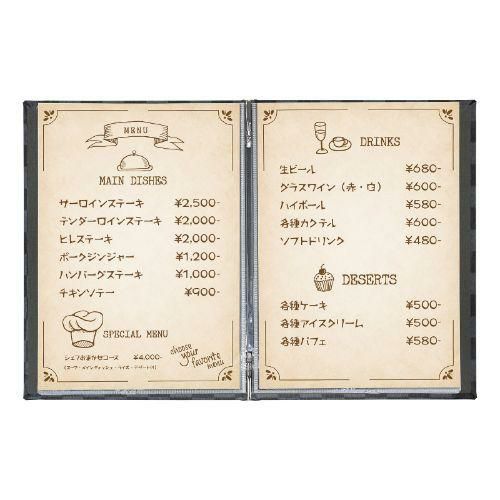 MENU
MAIN DISHES
サーロインステーキ ¥2,500-
テンダーロインステーキ ¥2,000-
ヒレステーキ ¥2,000-
ポークジンジャー ¥1,200-
ハンバーグステーキ ¥1,000-
チキンソテー ¥900-
SPECIAL MENU
シェフおまかせコース ¥4,000-
(スープ・メインディッシュ・ライス・デザート付)
choose
your
favorite
menu
DRINKS
生ビール ¥680-
グラスワイン（赤・白） ¥600-
ハイボール ¥580-
各種カクテル ¥600-
ソフトドリンク ¥480-
DESERTS
各種ケーキ ¥500-
各種アイスクリーム ¥500-
各種パフェ ¥580-